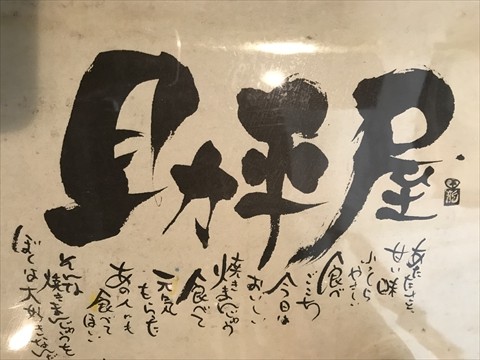 財坪屋
甘い味
ふっくら
やさしい
食べ
ごこち
今日は
おいしい
焼きまんじゅう
食べて
元気
もらった
あの人にも
食べて
ほしい
そんな
焼きまんじゅうも
ぼくは大好きなんだ